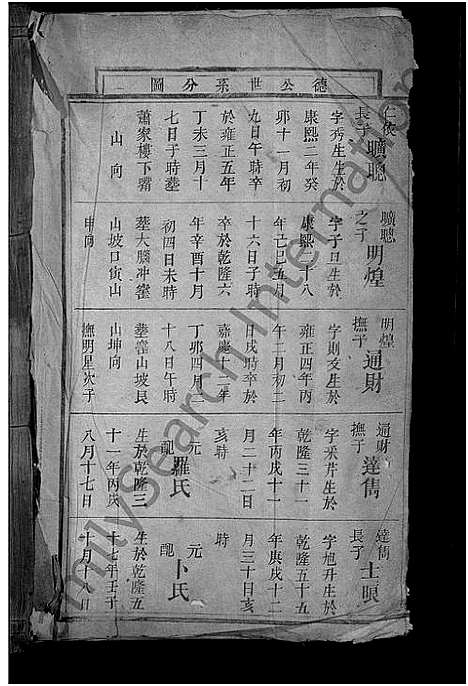 德公世系分圖 一
仁俊
長子 曠聰
字秀生生於
康熙二年癸
卯十一月初
九日午時卒
於雍正五年
丁未三月十
七日子時葬
蕭家樓下嘴
山向
曠聰
之子 明煌
字子日生於
康熙二十八
年己巳五月
十六日子時
卒於乾隆六
年辛酉十月
初四日未時
葬大腦冲壟
山坡口寅山
申向
明煌
撫子 通財
字則文生於
雍正四年丙
午二月初二
日戌時卒於
嘉慶十二年
丁卯四月二
十八日午時
葬壟山坡艮
山坤向
撫明星次子
通財
撫子 達雋
字采芹生於
乾隆三十一
年丙戌十一
月二十二日
亥時
元配 羅氏
生於乾隆三
十一年丙戌
八月十七日
達雋
長子 士
字旭升生於
乾隆五十五
年庚戌十二
月三十日亥
時
元配 卜氏
生於乾隆五
十七年壬子
十月十一日
Familysearch International